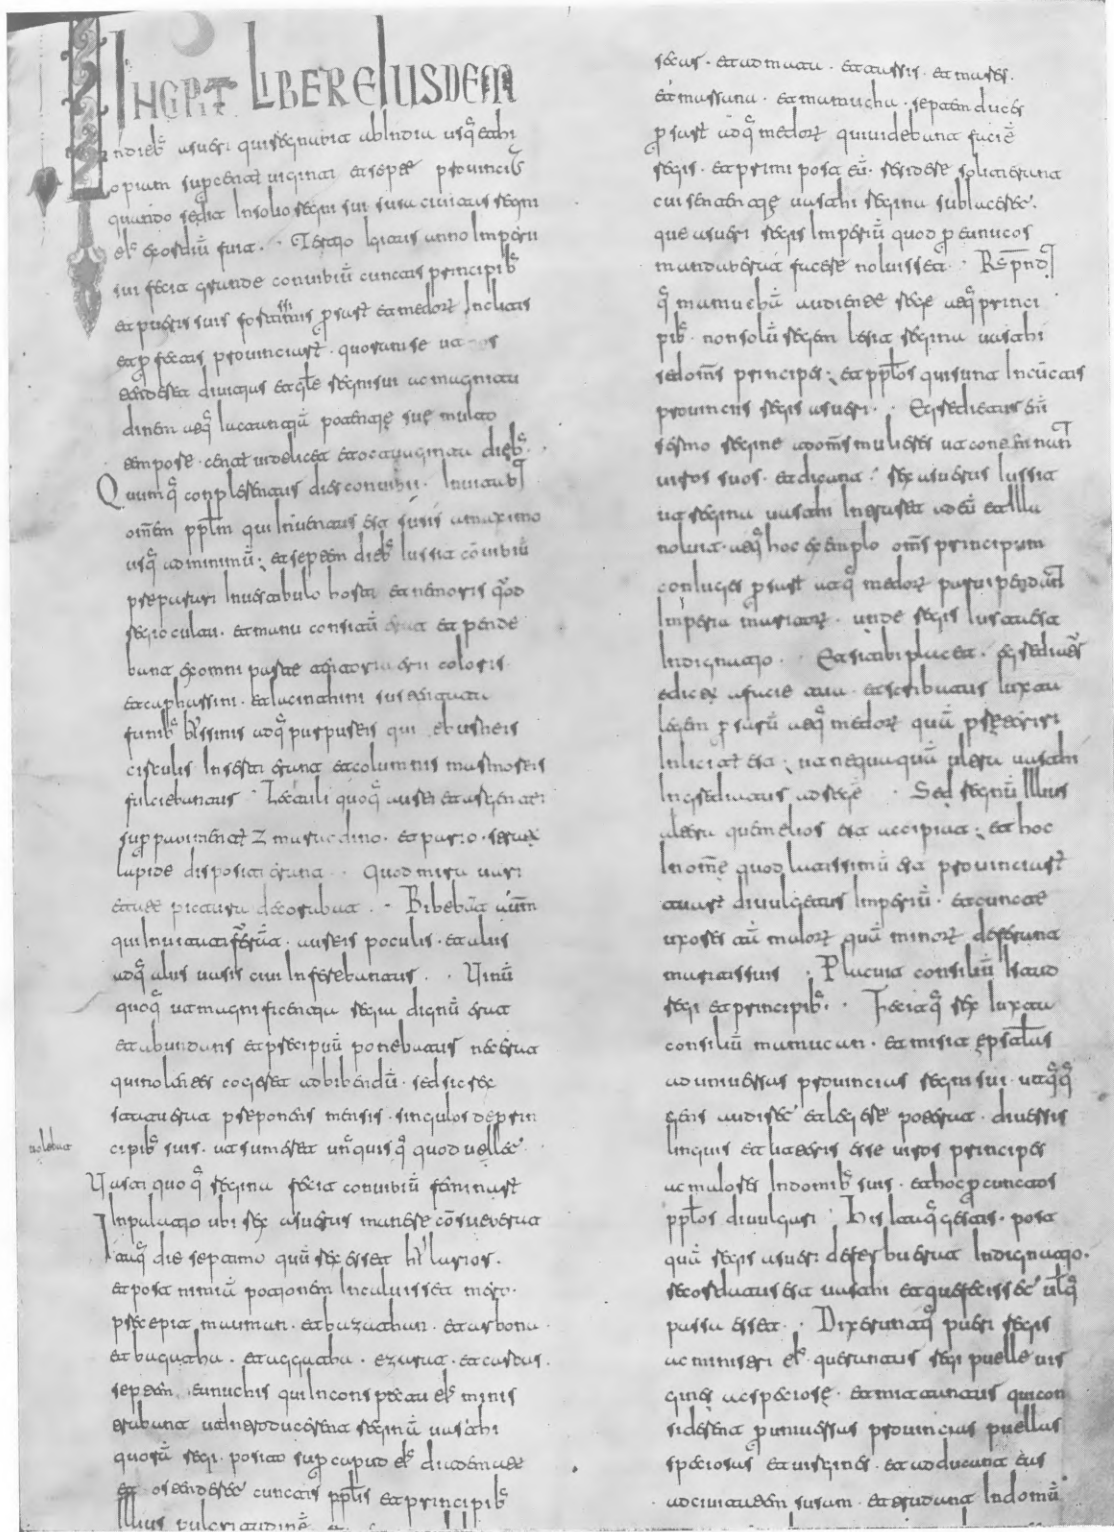 INCIPIT LIBER EIUSDEM
In dieb; asueri qui regnabit ab India usq; ethi
opiam super centum uiginti et septem prouincias
quando sedit In solio regni sui susa ciuitas regni
eius exordiū fuit. Tertio Igitur anno Imperii
sui fecit grande conuibiū cunctis principib;
et pueris suis fortissimis persarum et medorum Inclitis
et prefectis prouinciarum. quoram se
ostenderet diuitias et glorie regni sui ac magnitu
dinem atq; Iactantiā potentie sue multo
tempore. centum uidelicet et octauginta dieb;
Quumq; conplerentur dies conuibii. Inuitauit
omnem populum qui Inuentus est susis a maximo
usq; ad minimū; et septem dieb; Iussit cōuibiū
preparari In uestabulo horti et nemoris quod
regio cultu. et manu consitū erat et pende
bant ex omni parte tentoria erii coloris
et carphassini. et Iacinthini sustentata
funib; bissinis adq; purpureis qui eburneis
circulis Inserti erant et columnis marmoreis
fulciebantur. Lectuli quoq; aurei et argentei
super pauimentum zmaracdino. et pario. stratū
lapide dispositi erant. Quod mira uari
etate pictura decorabat. Bibebant autem
qui Inuitati fuerant. aureis poculis. et aliis
adq; aliis uasis ciui Inferebantur. Uinū
quoq; ut magnificentia regia dignū erat
et abundans et precipuū ponebatur nec erat
qui nolentes cogeret ad bibendū. sed sic rex
statuerat preponens mensis. singulos de prin
cipib; suis. ut sumeret unusquisq; quod uellet
nolebat
Uasti quoq; regina fecit conuibiū feminarum
In palatio ubi rex asuerus manere cōsueuerat
Itaq; die septimo quū rex esset hilarior.
et post nimiā potionem Incaluisset mero.
precepit mauman. et bazathan. et arbona.
et bagatha. et abgatha. ezarat. et carcas.
septem eunuchis qui In conspectu eius minis
trabant ut Introducerent reginā uasthi
quorā regi. posito super caput eius diademate
et ostenderet cunctis populis et principib;
Illius pulcritudinē
secus. et admata. et tarsis. et mares.
et marsana. et mamucha. septem duces
persarum adq; medorum qui uidebant faciē
regis. et primi post eū. residere soliti erant
cui sententie uasthi regina subiaceret.
que asueri regis Imperiū quod per eunucos
mandaberat facere noluisset. Respondit
q; mamuchā audiente rege atq; princi
pib;. non solū regem lesit regina uasthi
sed omnes principes; et populos qui sunt In cunctis
prouinciis regis asueri. Egredietur enim
sermo regine ad omnes mulieres ut contemnant
uiros suos. et dicant. rex asuerus Iussit
ut regina uasthi Intraret ad eū et Illa
noluit. atq; hoc exemplo omnes principum
coniuges persarum atq; medorum paruipendant
Imperia maritorum. unde regis Iusta est
Indignatio. Et si tibi placet. egrediatur
edictū a facie tua. et scribatur Iuxta
legem persarū atq; medorum quā preteriri
Inlicitum est; ut nequaquā ultra uasthi
Ingrediatur ad regē. Sed regnū Illius
altera que melior est accipiat; et hoc
In omne quod latissimū est prouinciarum
tuarum diuulgetur Imperiū. et cuncte
uxores tam maiorum quā minorum deferant
maritis suis. Placuit consiliū Istud
regi et principib;. Fecitq; rex Iuxta
consiliū mamucan. et misit epistulas
ad uniuersas prouincias regni sui. ut quęq;
gens audire et legere poterat. diuersis
linguis et litteris esse uiros principes
ac maiores In domib; suis. et hoc per cunctos
populos diuulgari. His Itaq; gestis. post
quā regis asueri deferbuerat Indignatio.
recordatus est uasthi et que fecisset uel que
passa esset. Dixeruntq; pueri regis
ac ministri eius. querantur regi puelle uir
gines ac speciose. et mittantur qui con
siderent per uniuersas prouincias puellas
speciosas et uirgines. et adducant eas
ad ciuitatem susam. et tradant In domū